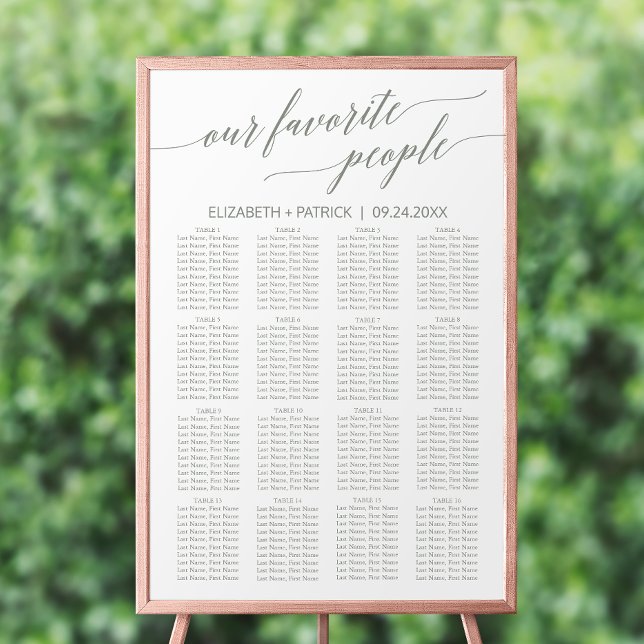 our favorite
people
ELIZABETH + PATRICK | 09.24.20XX
TABLE 1
Last Name, First Name
Last Name, First Name
Last Name, First Name
Last Name, First Name
Last Name, First Name
Last Name, First Name
Last Name, First Name
Last Name, First Name
Last Name, First Name
Last Name, First Name
TABLE 2
Last Name, First Name
Last Name, First Name
Last Name, First Name
Last Name, First Name
Last Name, First Name
Last Name, First Name
Last Name, First Name
Last Name, First Name
Last Name, First Name
Last Name, First Name
TABLE 3
Last Name, First Name
Last Name, First Name
Last Name, First Name
Last Name, First Name
Last Name, First Name
Last Name, First Name
Last Name, First Name
Last Name, First Name
Last Name, First Name
Last Name, First Name
TABLE 4
Last Name, First Name
Last Name, First Name
Last Name, First Name
Last Name, First Name
Last Name, First Name
Last Name, First Name
Last Name, First Name
Last Name, First Name
Last Name, First Name
Last Name, First Name
TABLE 5
Last Name, First Name
Last Name, First Name
Last Name, First Name
Last Name, First Name
Last Name, First Name
Last Name, First Name
Last Name, First Name
Last Name, First Name
Last Name, First Name
Last Name, First Name
TABLE 6
Last Name, First Name
Last Name, First Name
Last Name, First Name
Last Name, First Name
Last Name, First Name
Last Name, First Name
Last Name, First Name
Last Name, First Name
Last Name, First Name
Last Name, First Name
TABLE 7
Last Name, First Name
Last Name, First Name
Last Name, First Name
Last Name, First Name
Last Name, First Name
Last Name, First Name
Last Name, First Name
Last Name, First Name
Last Name, First Name
Last Name, First Name
TABLE 8
Last Name, First Name
Last Name, First Name
Last Name, First Name
Last Name, First Name
Last Name, First Name
Last Name, First Name
Last Name, First Name
Last Name, First Name
Last Name, First Name
Last Name, First Name
TABLE 9
Last Name, First Name
Last Name, First Name
Last Name, First Name
Last Name, First Name
Last Name, First Name
Last Name, First Name
Last Name, First Name
Last Name, First Name
Last Name, First Name
Last Name, First Name
TABLE 10
Last Name, First Name
Last Name, First Name
Last Name, First Name
Last Name, First Name
Last Name, First Name
Last Name, First Name
Last Name, First Name
Last Name, First Name
Last Name, First Name
Last Name, First Name
TABLE 11
Last Name, First Name
Last Name, First Name
Last Name, First Name
Last Name, First Name
Last Name, First Name
Last Name, First Name
Last Name, First Name
Last Name, First Name
Last Name, First Name
Last Name, First Name
TABLE 12
Last Name, First Name
Last Name, First Name
Last Name, First Name
Last Name, First Name
Last Name, First Name
Last Name, First Name
Last Name, First Name
Last Name, First Name
Last Name, First Name
Last Name, First Name
TABLE 13
Last Name, First Name
Last Name, First Name
Last Name, First Name
Last Name, First Name
Last Name, First Name
Last Name, First Name
Last Name, First Name
Last Name, First Name
Last Name, First Name
Last Name, First Name
TABLE 14
Last Name, First Name
Last Name, First Name
Last Name, First Name
Last Name, First Name
Last Name, First Name
Last Name, First Name
Last Name, First Name
Last Name, First Name
Last Name, First Name
Last Name, First Name
TABLE 15
Last Name, First Name
Last Name, First Name
Last Name, First Name
Last Name, First Name
Last Name, First Name
Last Name, First Name
Last Name, First Name
Last Name, First Name
Last Name, First Name
Last Name, First Name
TABLE 16
Last Name, First Name
Last Name, First Name
Last Name, First Name
Last Name, First Name
Last Name, First Name
Last Name, First Name
Last Name, First Name
Last Name, First Name
Last Name, First Name
Last Name, First Name